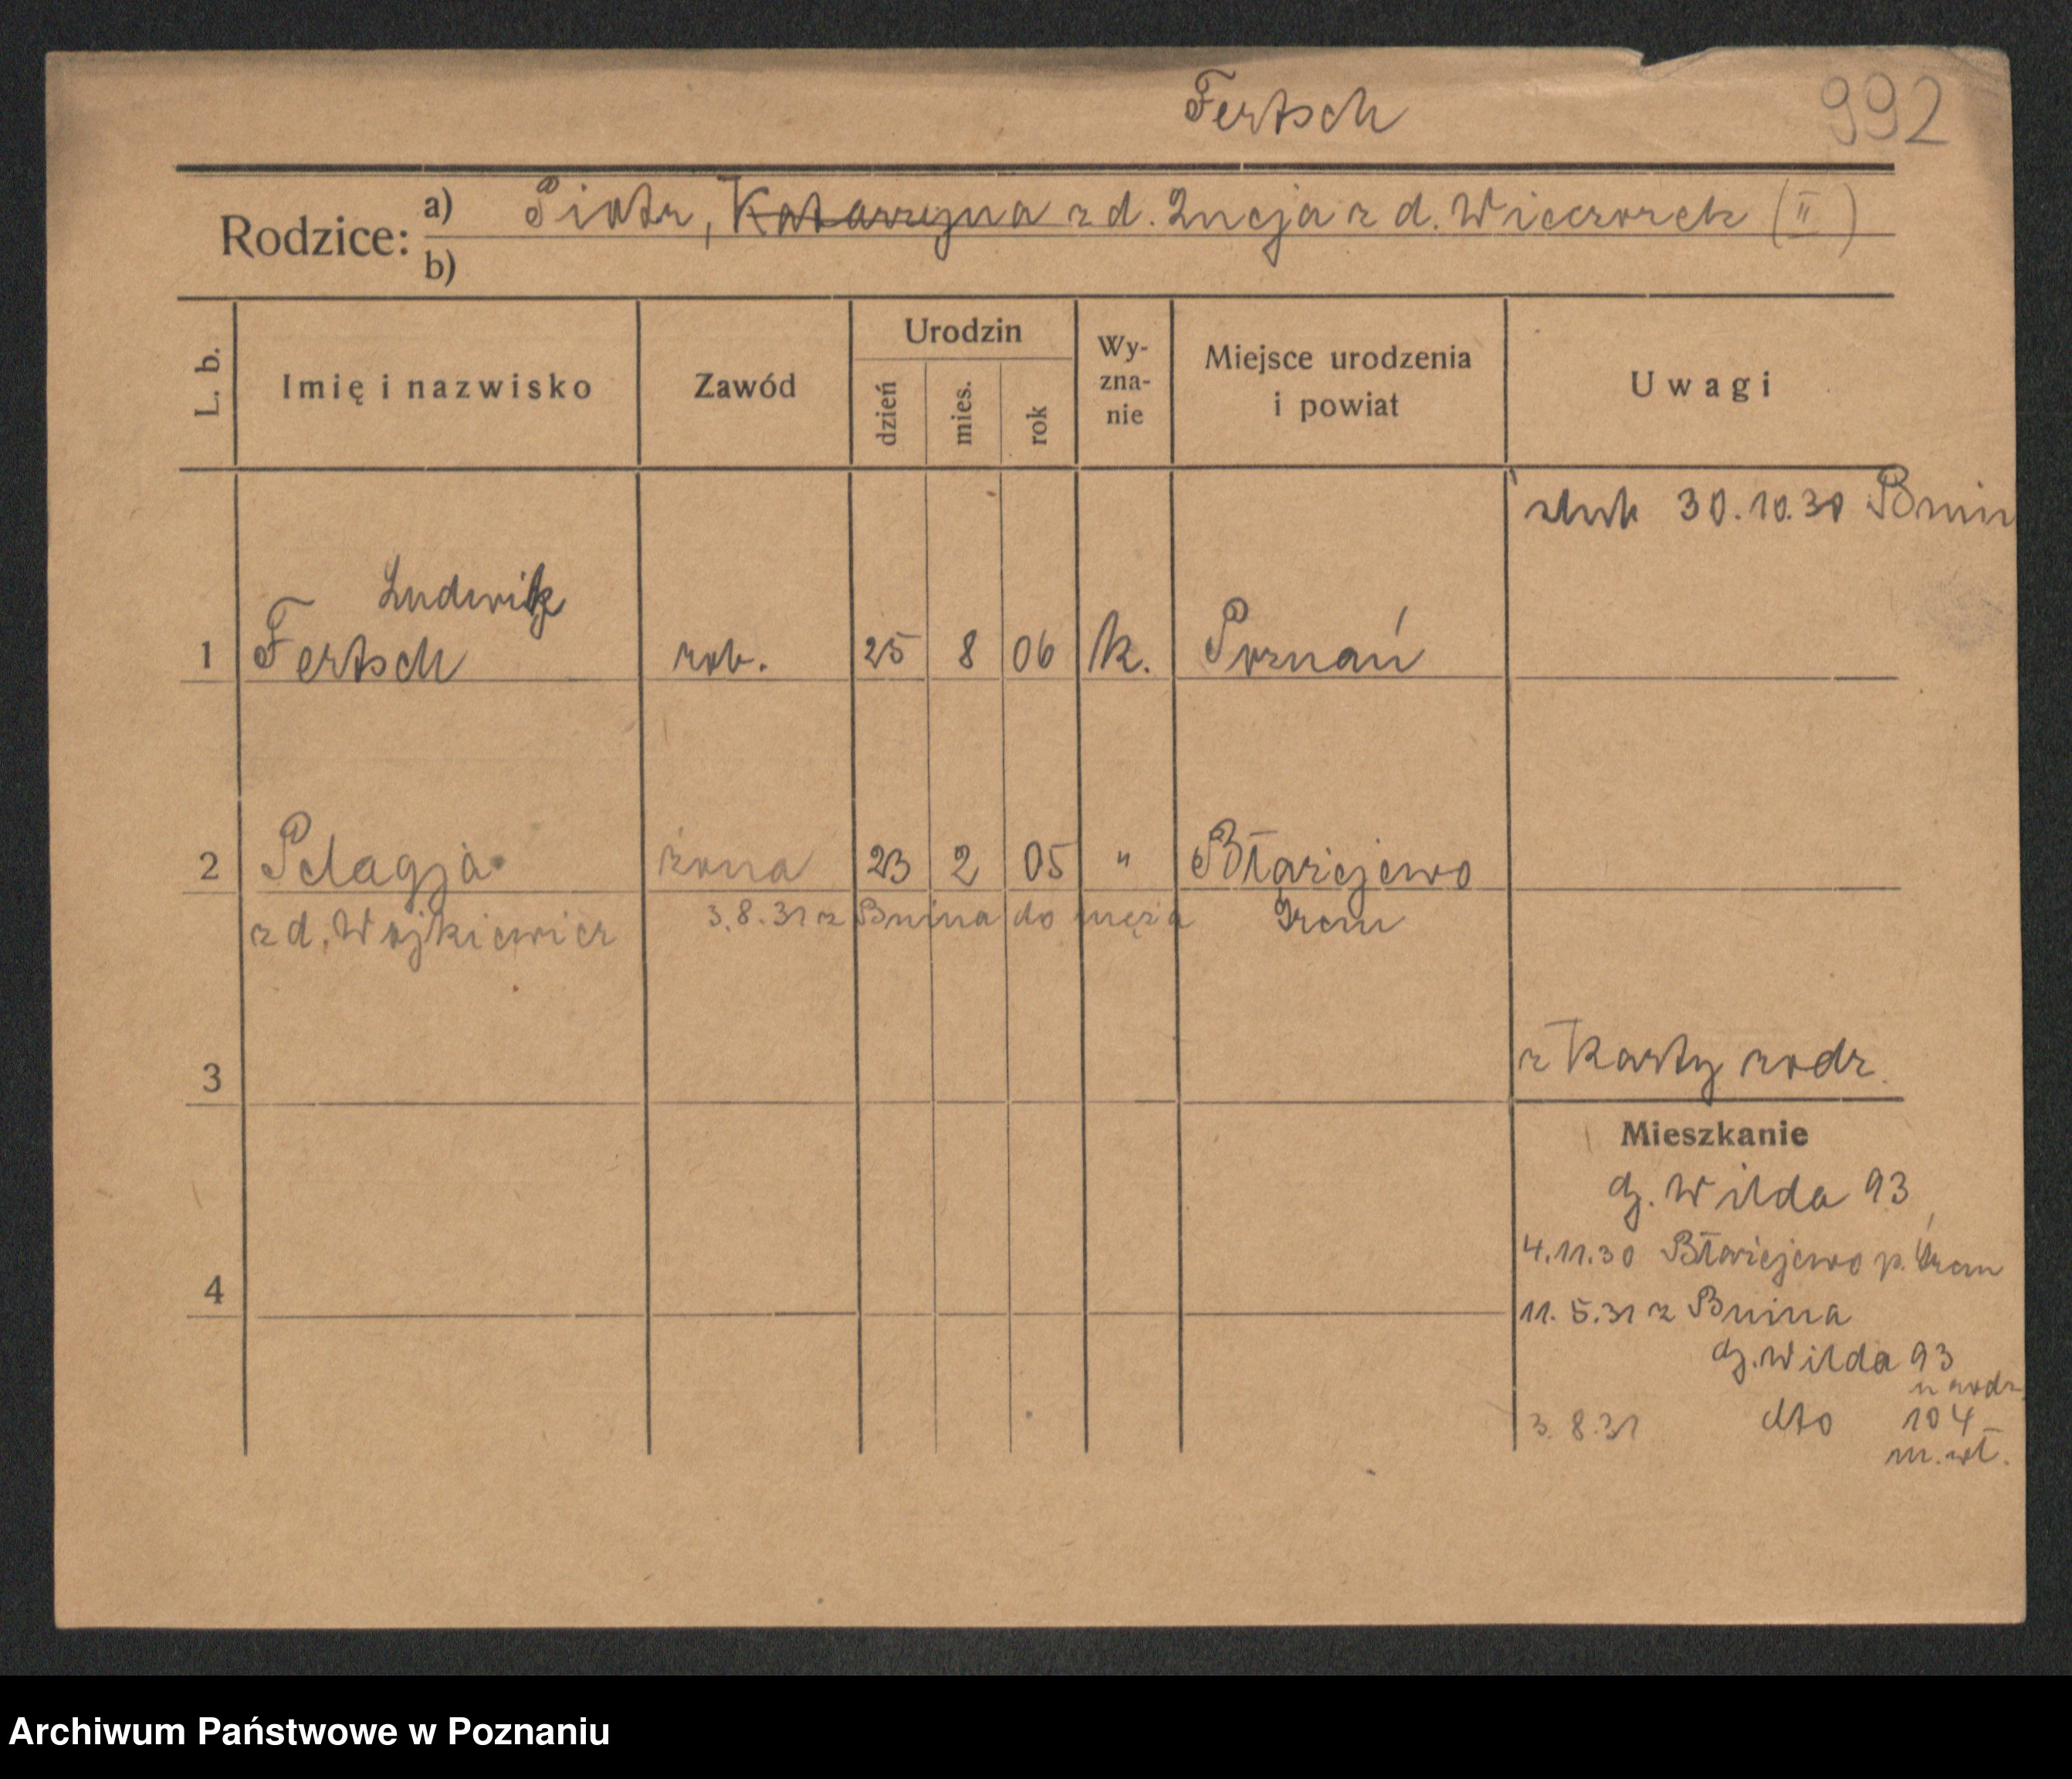 Fertsch 992
Rodzice: a) Piotr, Katarzyna z d. Łucja z d. Wieczorek (II)
b)
L. b. Imię i nazwisko Zawód Urodzin dzień mies. rok Wy-zna-nie Miejsce urodzenia i powiat Uwagi
ślub 30.10.30 Bnin
Ludwik
1 Fertsch rob. 25 8 06 k. Poznań
2 Pelagja żona 23 2 05 " Błażejewo
z d. Wojkiewicz 3.8.31 z Bnina do męża Śrem
3 z Karty rodz.
Mieszkanie
G. Wilda 93
4.11.30 Błażejewo p. Śrem
4 11.5.31 z Bnina
G. Wilda 93
u rodz.
3.8.31 dto 104
m. wł.
Archiwum Państwowe w Poznaniu